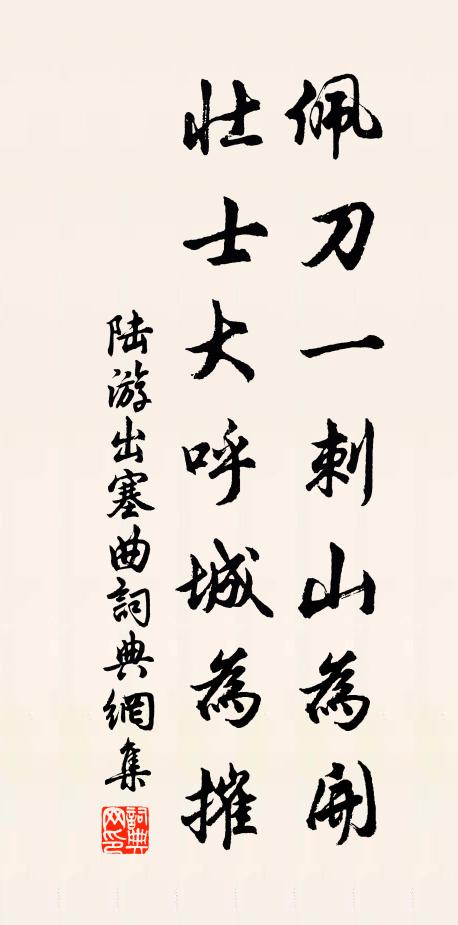 佩刀一刺山為開
壯士大呼城為摧
陆游出塞曲詞典網集
詞典網印